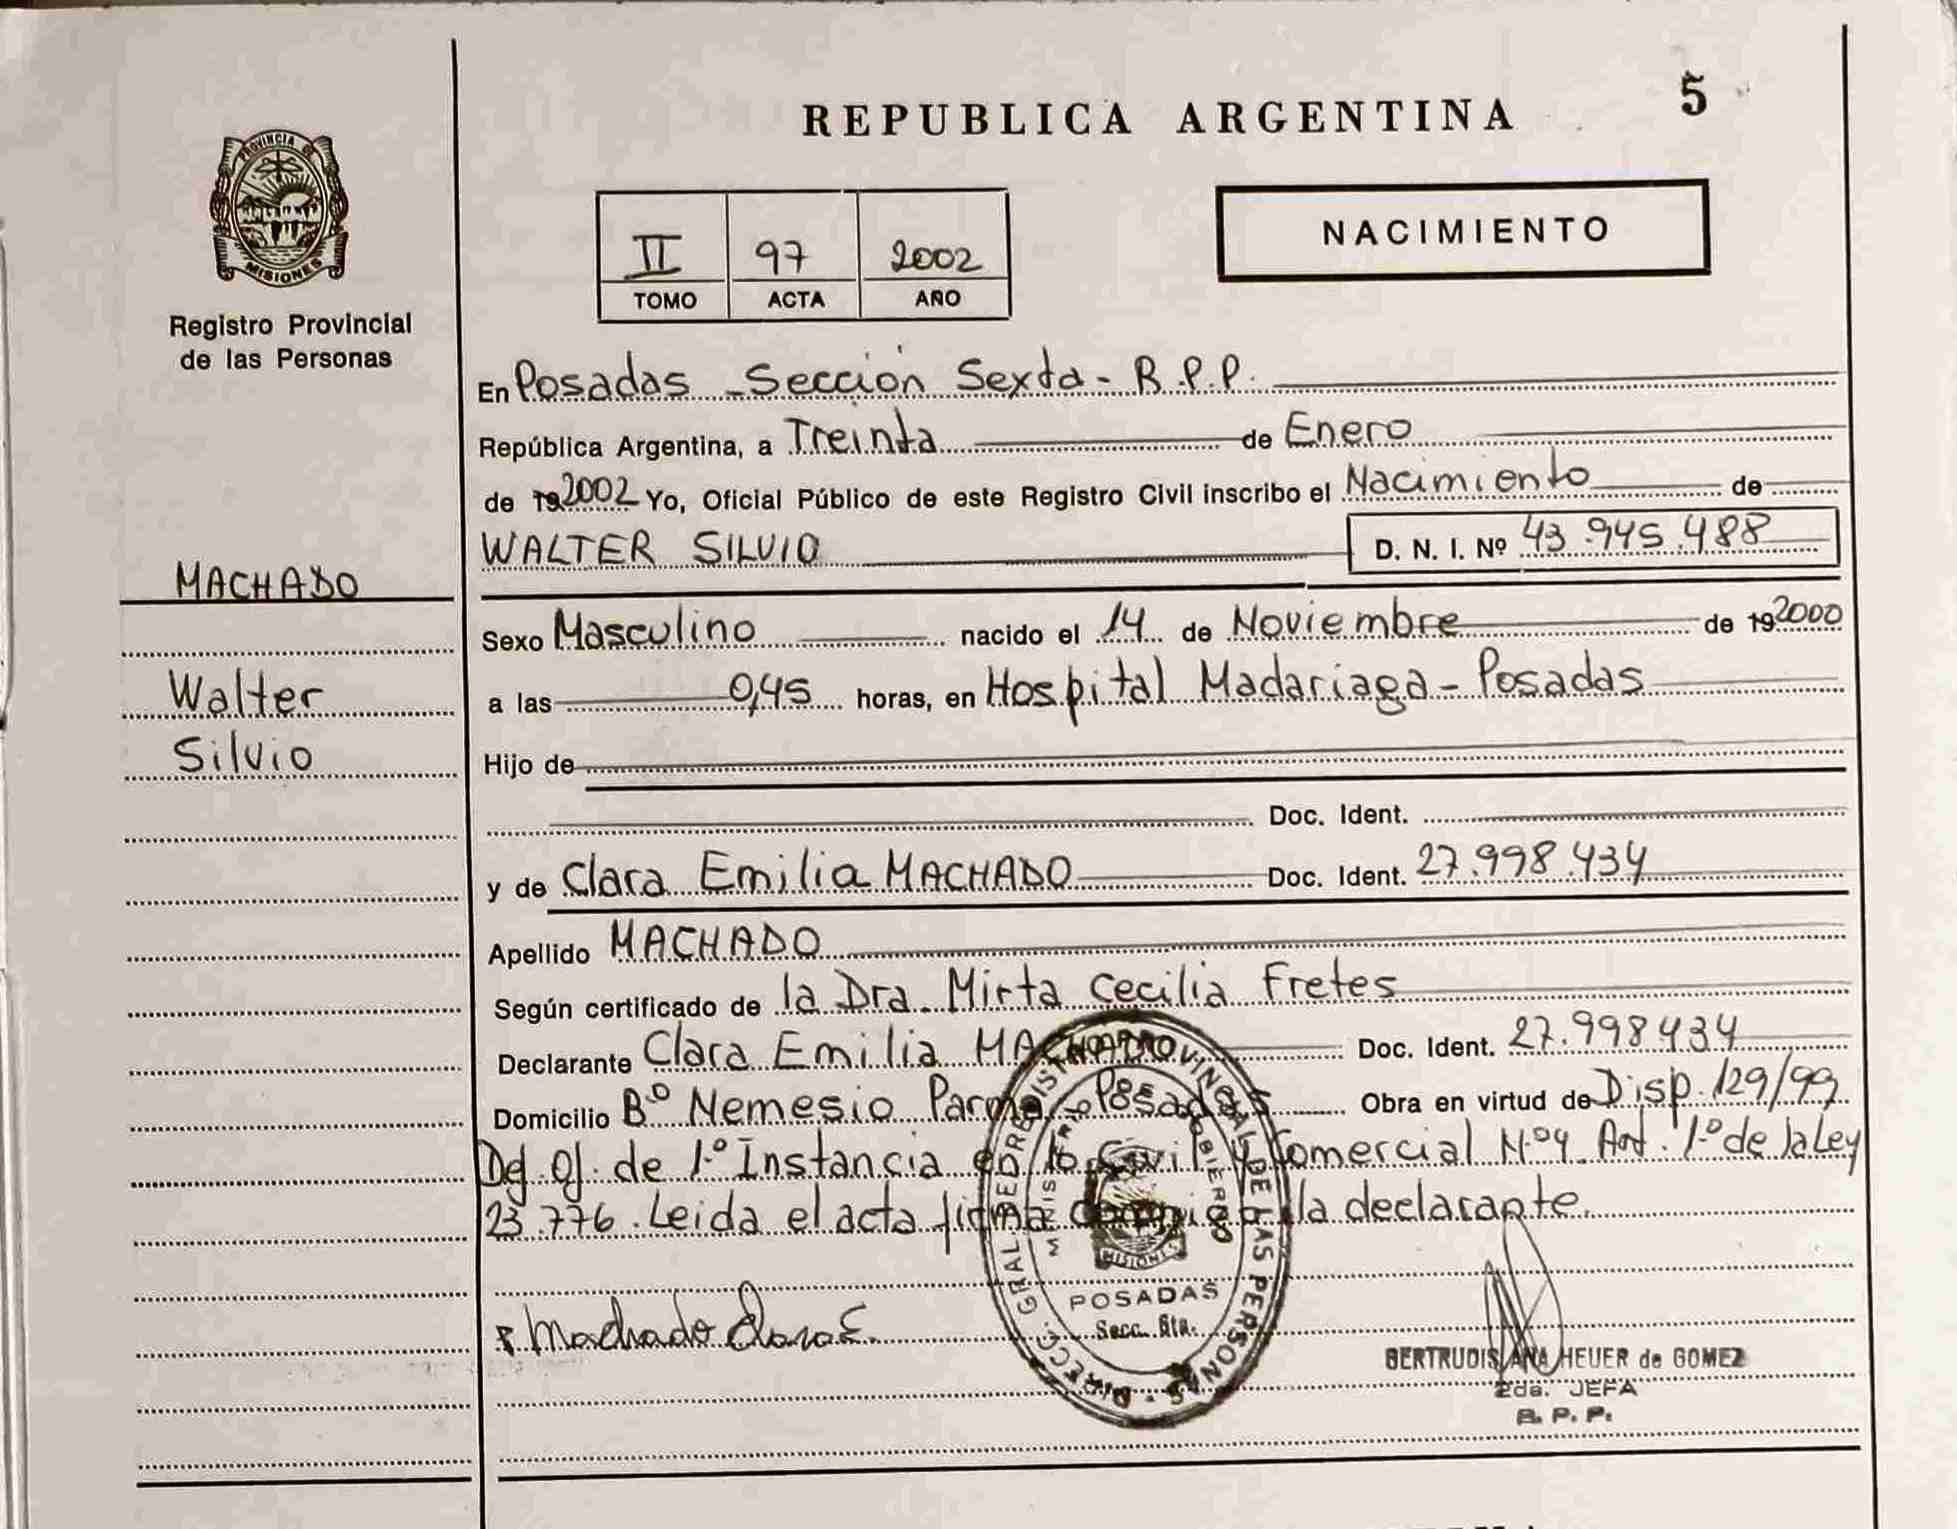 5
REPUBLICA ARGENTINA
PROVINCIA DE
MISIONES
Registro Provincial
de las Personas
II 97 2002
TOMO ACTA AÑO
NACIMIENTO
En Posadas - Sección Sexta - R.P.P.
República Argentina, a Treinta de Enero
de 19 2002 Yo, Oficial Público de este Registro Civil inscribo el Nacimiento de
WALTER SILVIO D. N. I. Nº 43.945.488
MACHADO
Walter
Silvio
Sexo Masculino nacido el 14 de Noviembre de 19 2000
a las 0,45 horas, en Hospital Madariaga - Posadas
Hijo de
Doc. Ident.
y de Clara Emilia MACHADO Doc. Ident. 27.998.434
Apellido MACHADO
Según certificado de la Dra. Mirta Cecilia Fretes
Declarante Clara Emilia MACHADO Doc. Ident. 27.998434
Domicilio Bº Nemesio Parma - Posadas Obra en virtud de Disp. 129/99
Def. Of. de 1º Instancia en lo Civil y Comercial Nº4. Art. 1º de la Ley
23.776. Leida el acta firma conmigo la declarante.
Machado Clara E.
DIRECC. GRAL DEL REGISTRO PROVINCIAL DE LAS PERSONAS
POSADAS
Secc. 6ta.
GERTRUDIS ANA HEUER de GOMEZ
2da. JEFA
R. P. P.